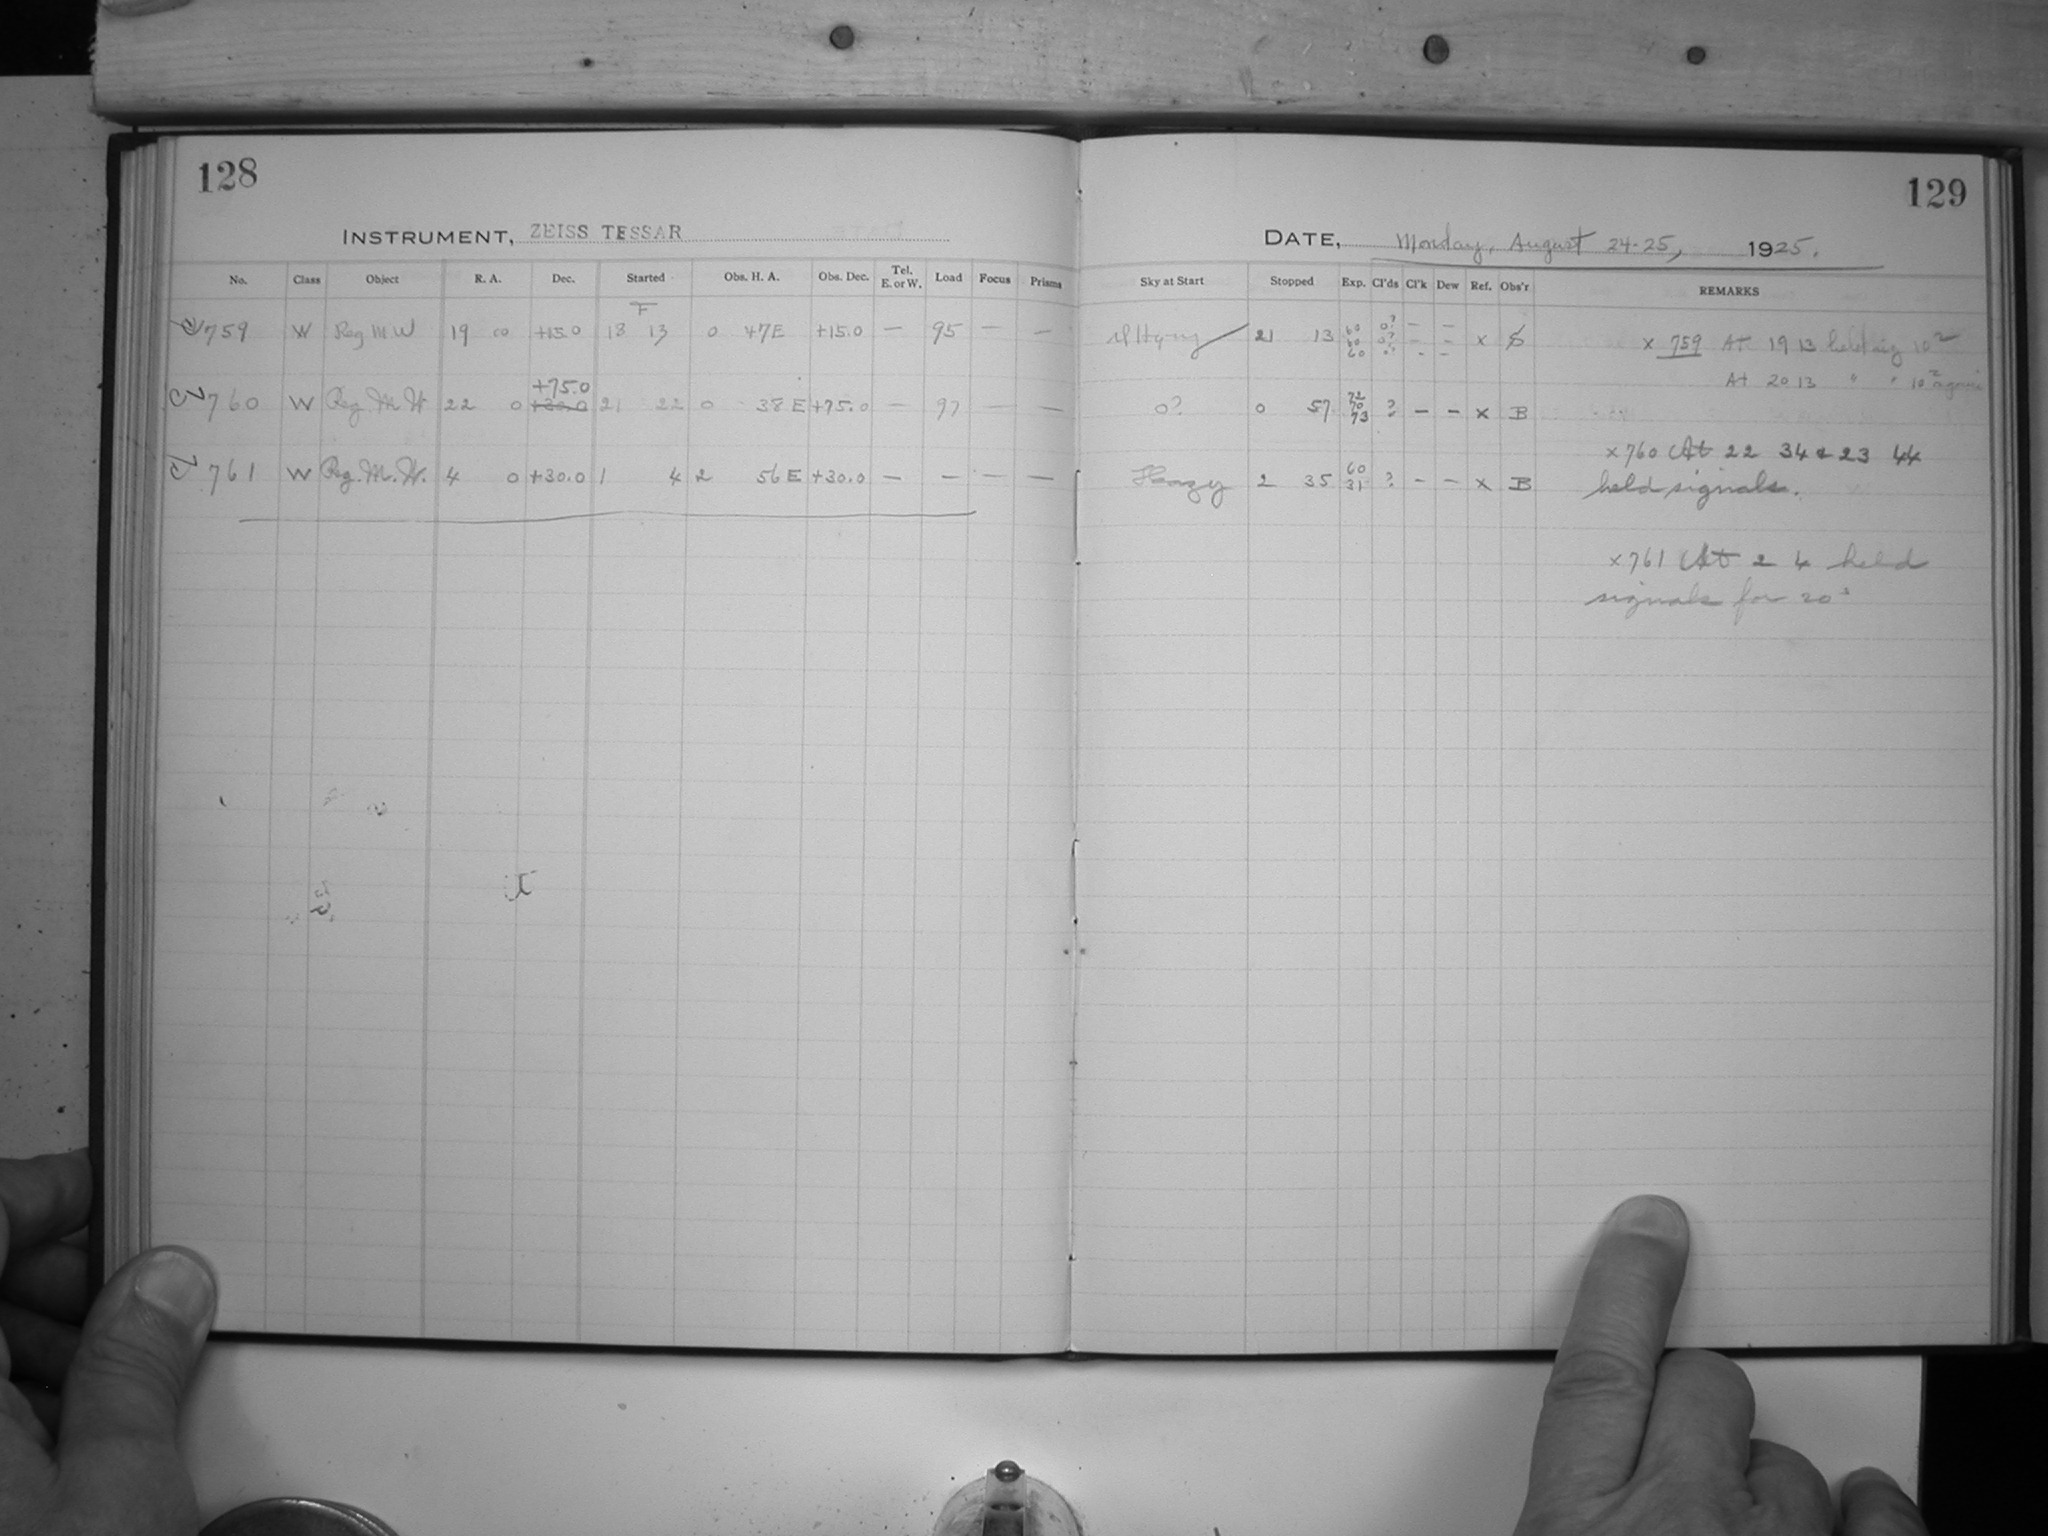 128
INSTRUMENT, ZEISS TESSAR
No. Class Object R. A. Dec. Started Obs. H. A. Obs. Dec. Tel. E. or W. Load Focus Prisms
F
759 W Reg M W 19 00 +15.0 18 13 0 47E +15.0 — 95 — —
+75.0
760 W Reg. M W 22 0 +30.0 21 22 0 38 E +75.0 — 97 — —
761 W Reg. M. W. 4 0 +30.0 1 4 2 56 E +30.0 — — — —
129
DATE, Monday, August 24-25, 1925.
Sky at Start Stopped Exp. Cl'ds Cl'k Dew Ref. Obs'r REMARKS
21 13 60 0? — —
60 0? - - x
60 0? - -
x 759 At 19 13 held sig 10
At 20 13 " " 10 again
0? 0 57 72 70 73 ? — — x B
x 760 At 22 34 & 23 44
Hazy 2 35 60 31 ? - — x B
held signals.
x 761 At 2 4 held
signals for 20 s